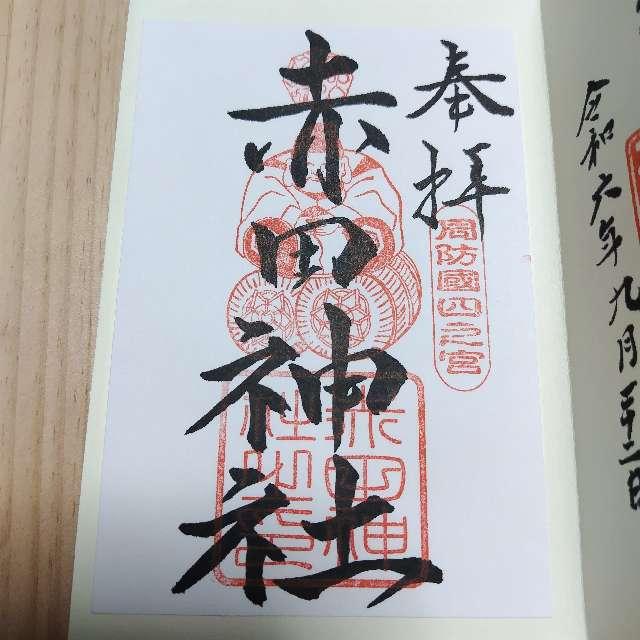 奉拝
周防國四之宮
赤田神社
赤田神社之印
令和六年九月二十二日